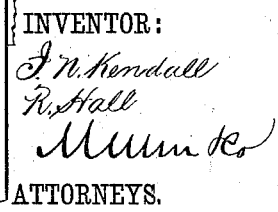 INVENTOR:
J. N. Kendall
R. Hall
Munn & Co
ATTORNEYS.